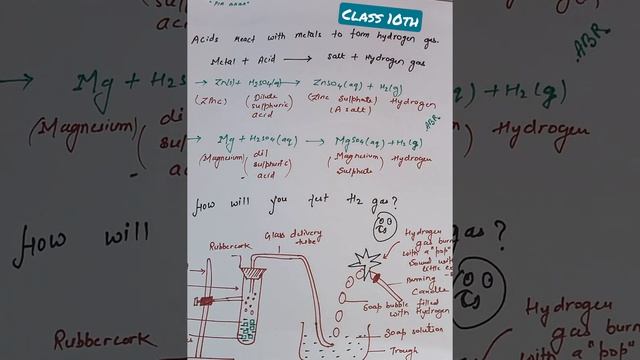 CLASS 10TH
Acids React with metals to form hydrogen gas.
Metal + Acid → salt + Hydrogen gas
→ Zn(s) + H₂SO₄(aq) → ZnSO₄(aq) + H₂(g)
(Zinc) (Dilute sulphuric acid) (Zinc Sulphate) (A salt) Hydrogen
ABR
→ Mg + H₂SO₄(aq) → MgSO₄(aq) + H₂(g)
(Magnesium) (dil sulphuric acid) (Magnesium Sulphate) Hydrogen
How will you test H₂ gas?
Glass delivery tube
Rubbercork
Hydrogen gas burn
with a "pop"
Sound with
Burning
Candle
Soap bubble filled
with Hydrogen
Soap solution
Trough
ABR
→ Mg + H₂S
(Magnesium) (di
sulp
a
) + H₂(g)
Hydrogen
How will
s?
Rubbercork
Hydrogen
gas bu
with a
Sound